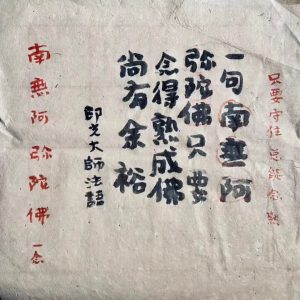 只要守住 总能念熟
一句南無阿
弥陀佛只要
念得熟成佛
尚有余裕
印光大师法語
南無阿弥陀佛 一念